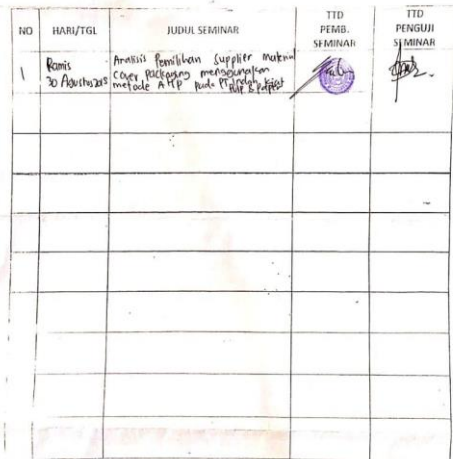 NO HARI/TGL JUDUL SEMINAR TTD PEMB. SEMINAR TTD PENGUJI SEMINAR
1 Kamis 30 Agustus 2018
Analisis Pemilihan Supplier Material
Cover Packaging menggunakan
metode AHP pada PT. Indah Kiat
Pulp & Paper